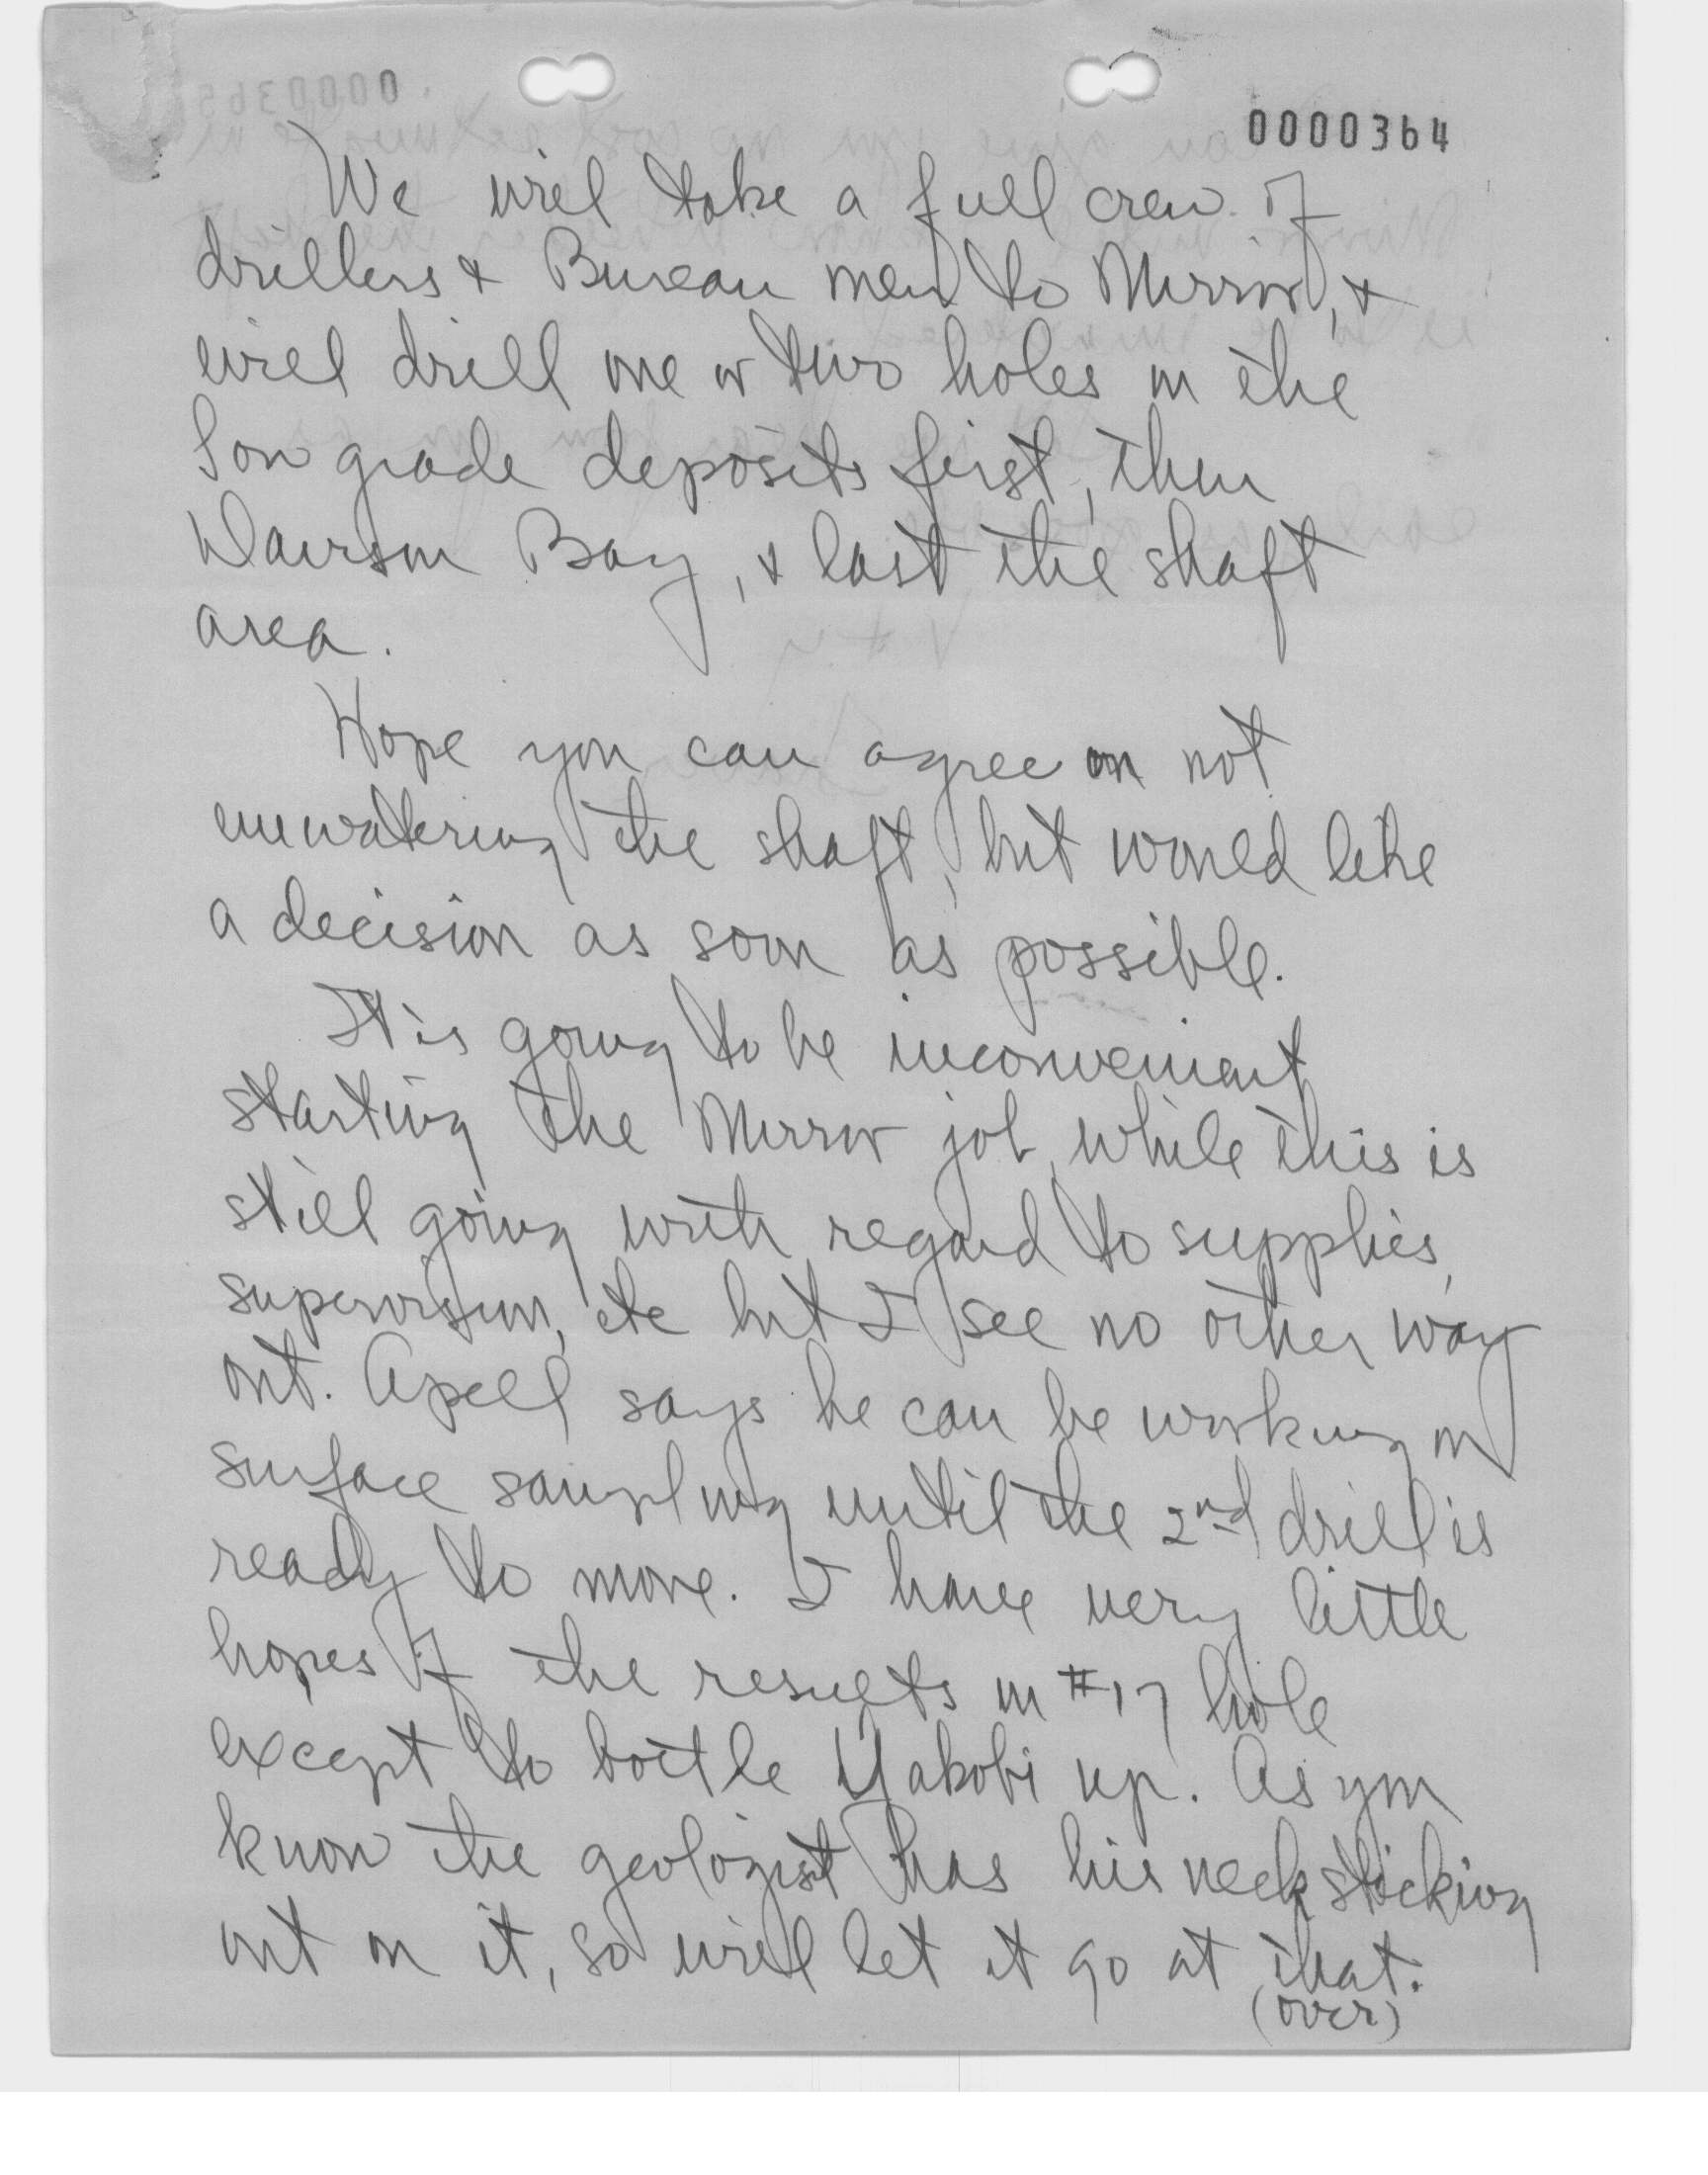 0000364
We will take a full crew of
drillers & Bureau men to Mirror, &
will drill one or two holes in the
low grade deposits first, then
Davison Bay, & last the shaft
area.
Hope you can agree on not
unwatering the shaft, but would like
a decision as soon as possible.
It is going to be inconvenient
starting the Mirror job, while this is
still going with regard to supplies,
supervision, etc but I see no other way
out. Apell says he can be working on
surface sampling until the 2nd drill is
ready to move. I have very little
hopes of the results in #17 hole
except to bottle Yakobi up. As you
know the geologist has his neck sticking
out on it, so will let it go at that.
(over)